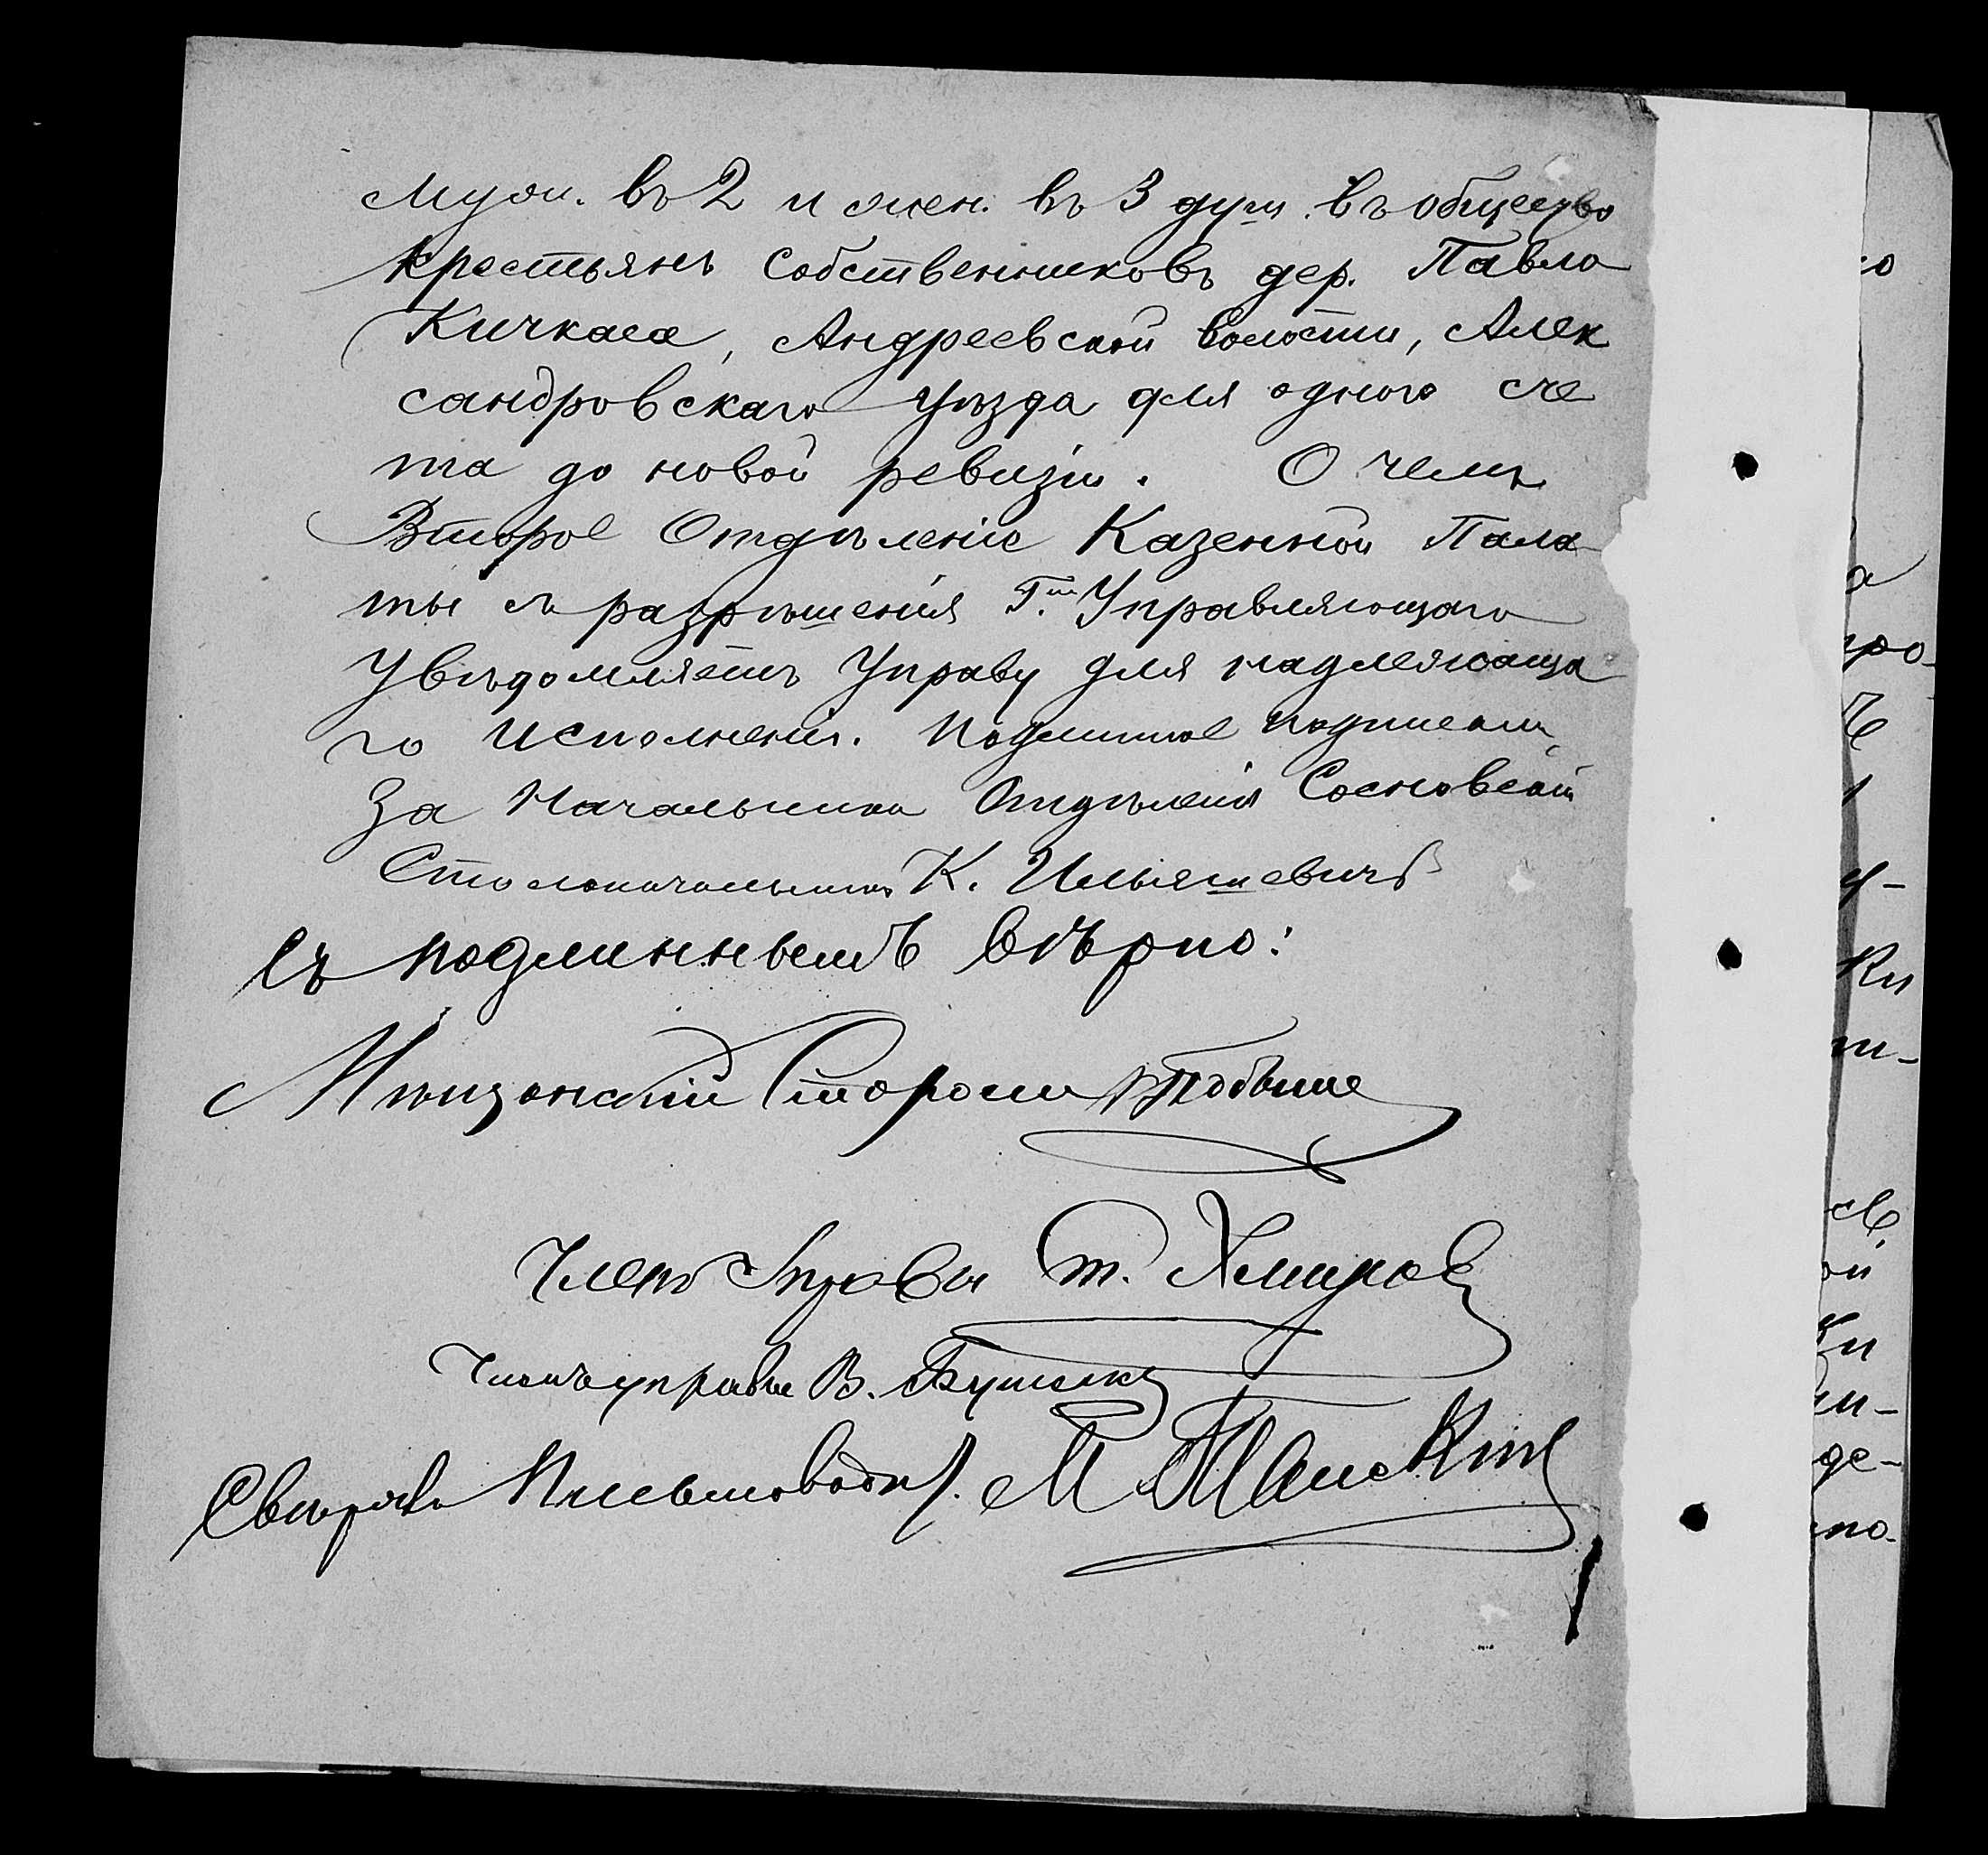 муж. въ 2 и жен. въ 3 душ. въ общество
крестьянъ собственниковъ дер. Павло
Кичкаса, Андреевской волости, Алек
сандровскаго уѣзда для одного сче
та до новой ревизіи. О чемъ
Второе Отдѣленіе Казенной Пала
ты съ разрѣшенія Г.на Управляющаго
увѣдомляетъ Управу для надлежаща
го исполненія. Подлинное подписали
За Начальника Отдѣленія Сосновскій
Столоначальникъ К. Ильяшевичъ
Съ подлиннымъ вѣрно:
Мѣщанскій Староста
Членъ Управы
Членъ управы В.
Свѣрялъ Письмоводит. М